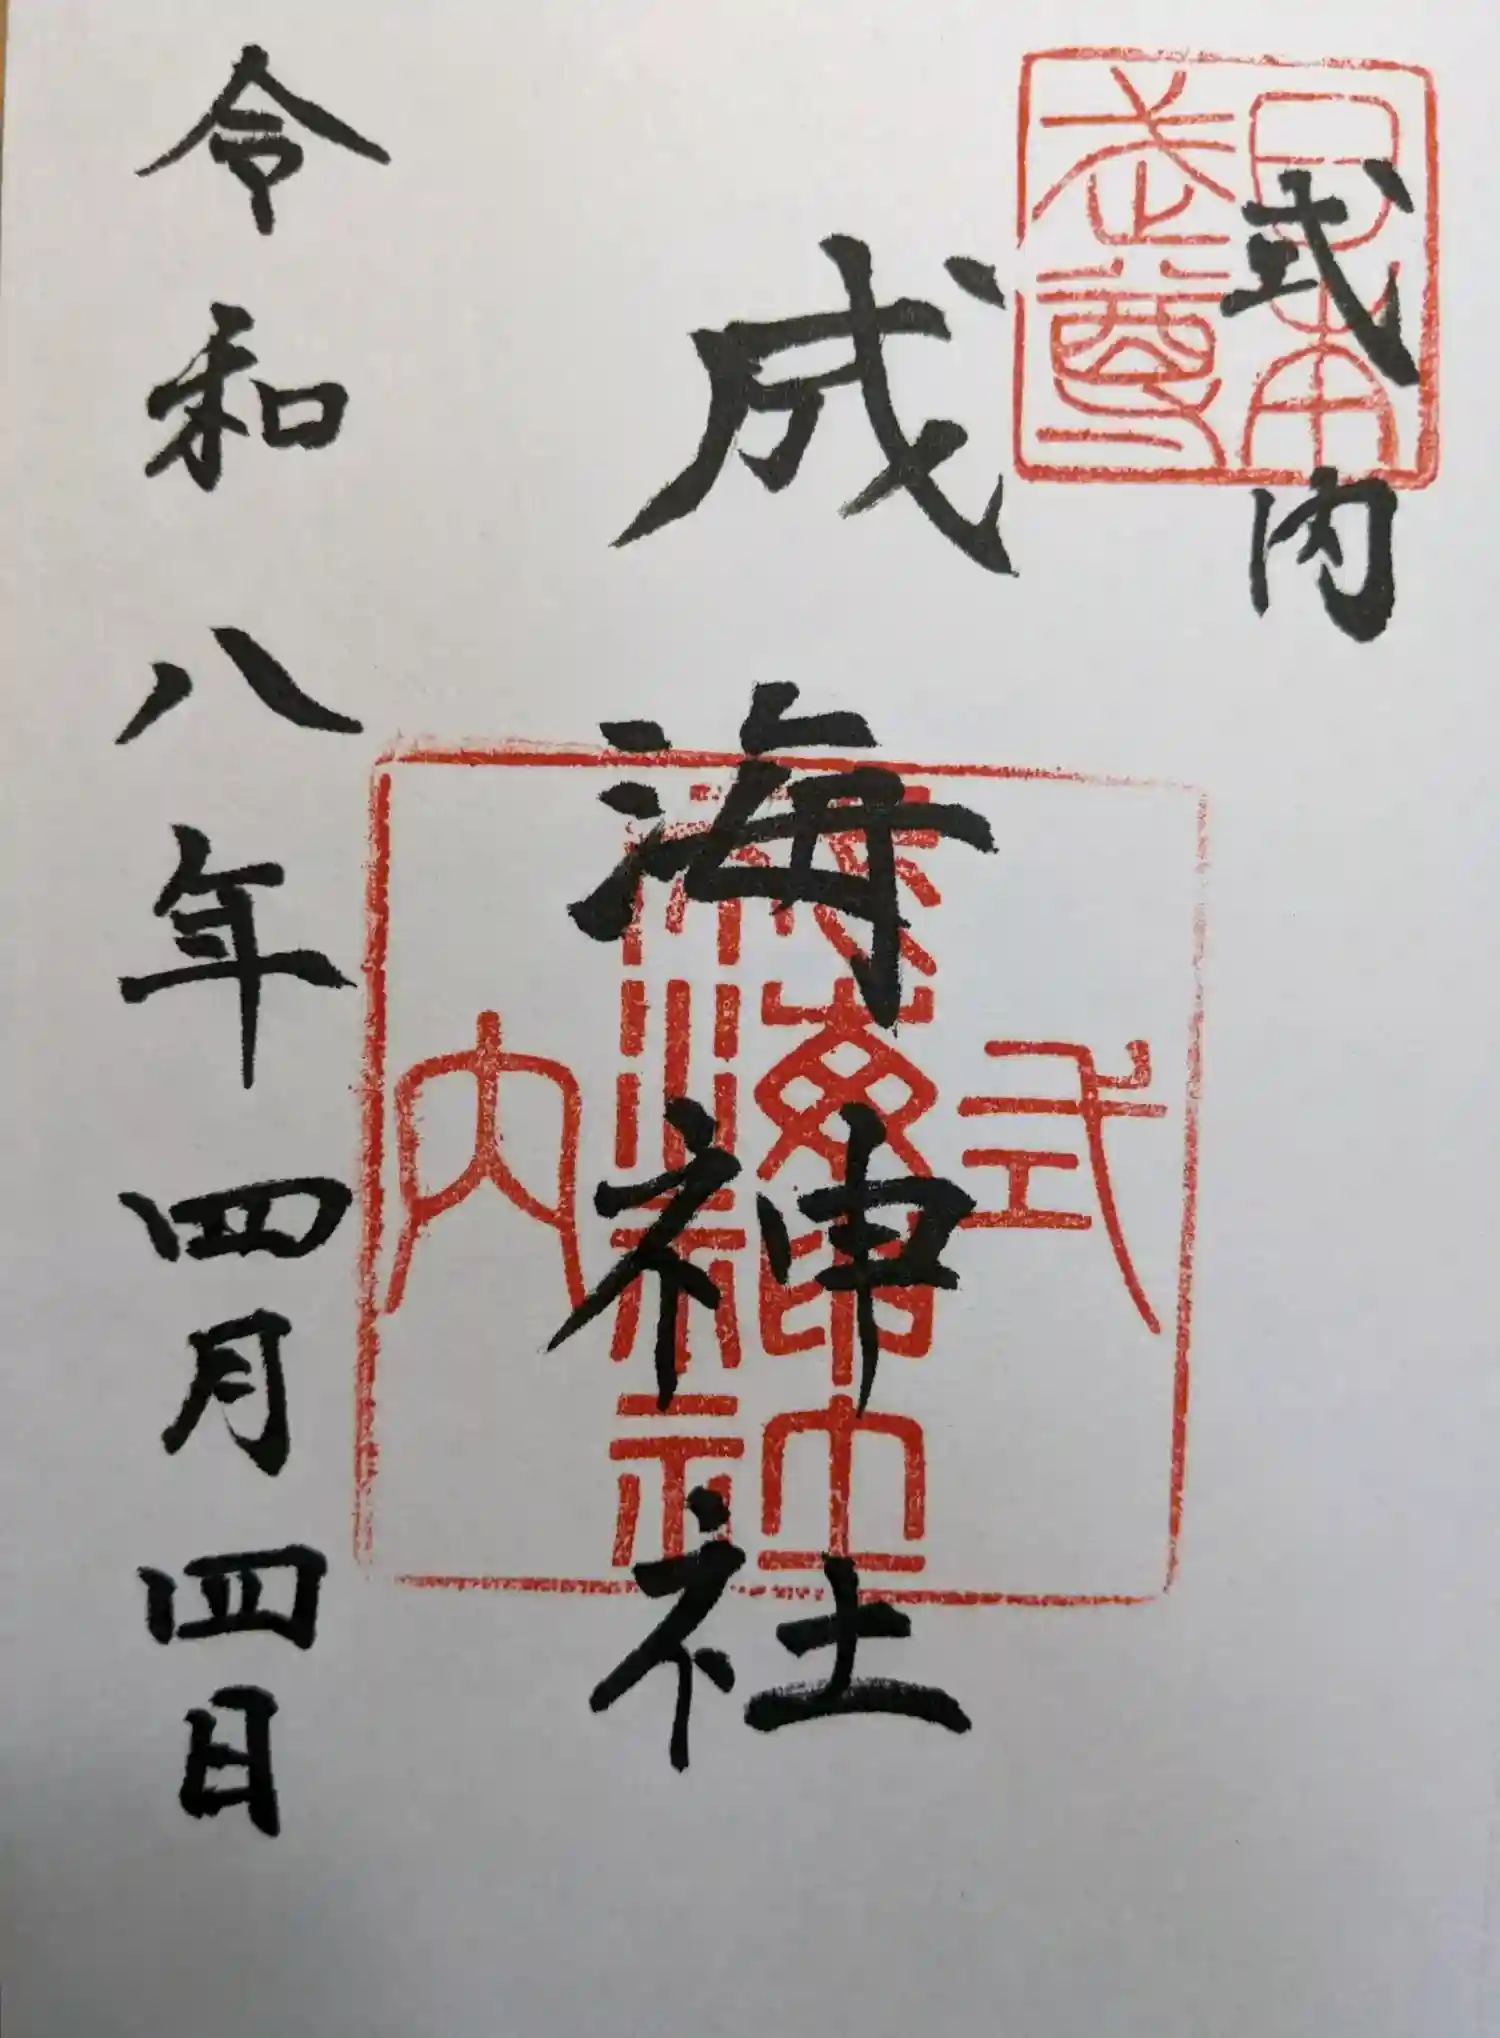 日本
武尊
式内
成海神社
式
海神社
内
令和八年四月四日